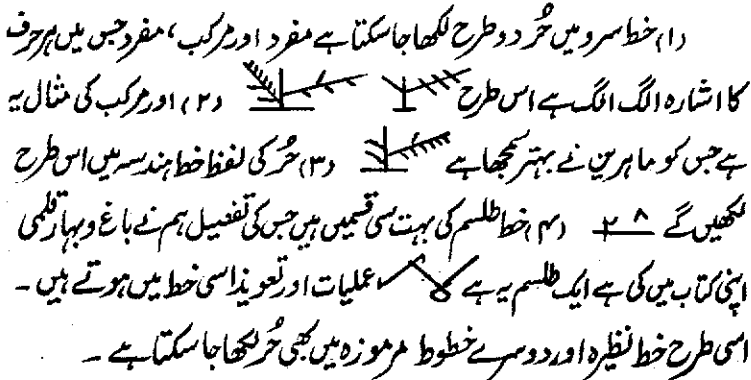 (۱) خط سرو میں حُر دو طرح لکھا جاسکتا ہے مفرد اور مرکب، مفرد جس میں ہر حرف
کا اشارہ الگ الگ ہے اس طرح (۲) اور مرکب کی مثال یہ
ہے جس کو ماہرین نے بہتر سمجھا ہے (۳) حُر کی لفظ خط ہندسہ میں اس طرح
لکھیں گے ۲ ۸ (۴) خط طلسم کی بہت سی قسمیں ہیں جس کی تفصیل ہم نے باغ و بہار قلمی
اپنی کتاب میں کی ہے ایک طلسم یہ ہے عملیات اور تعویذ اسی خط میں ہوتے ہیں ۔
اسی طرح خط نظیرہ اور دوسرے خطوط مرموزہ میں بھی حُر لکھا جاسکتا ہے ۔